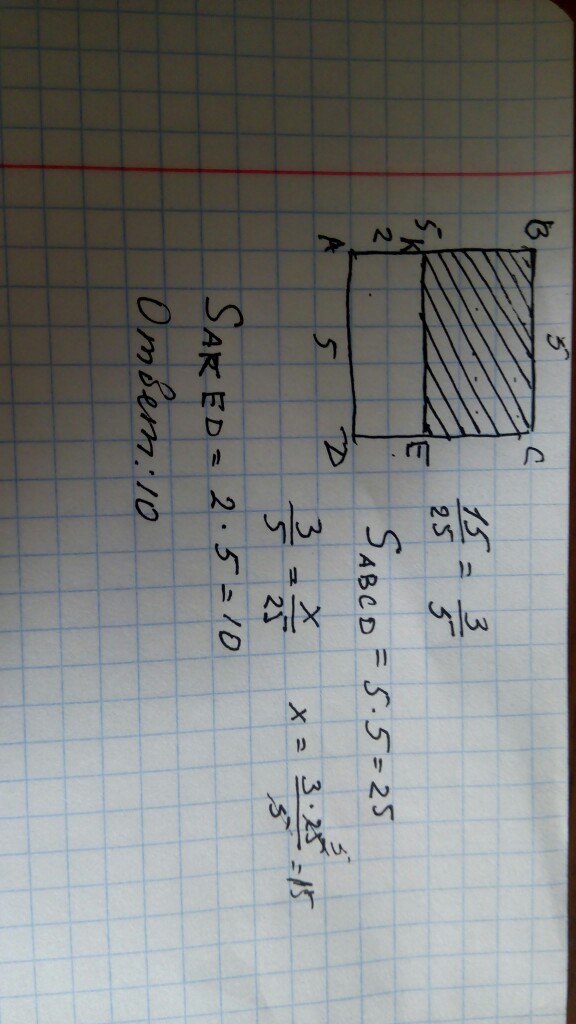 B 5 C
5
K E
2
A 5 D
15/25 = 3/5
S ABCD = 5·5=25
3/5 = x/25 x = 3·25 5/5 =15
S AKED = 2·5=10
Ответ: 10